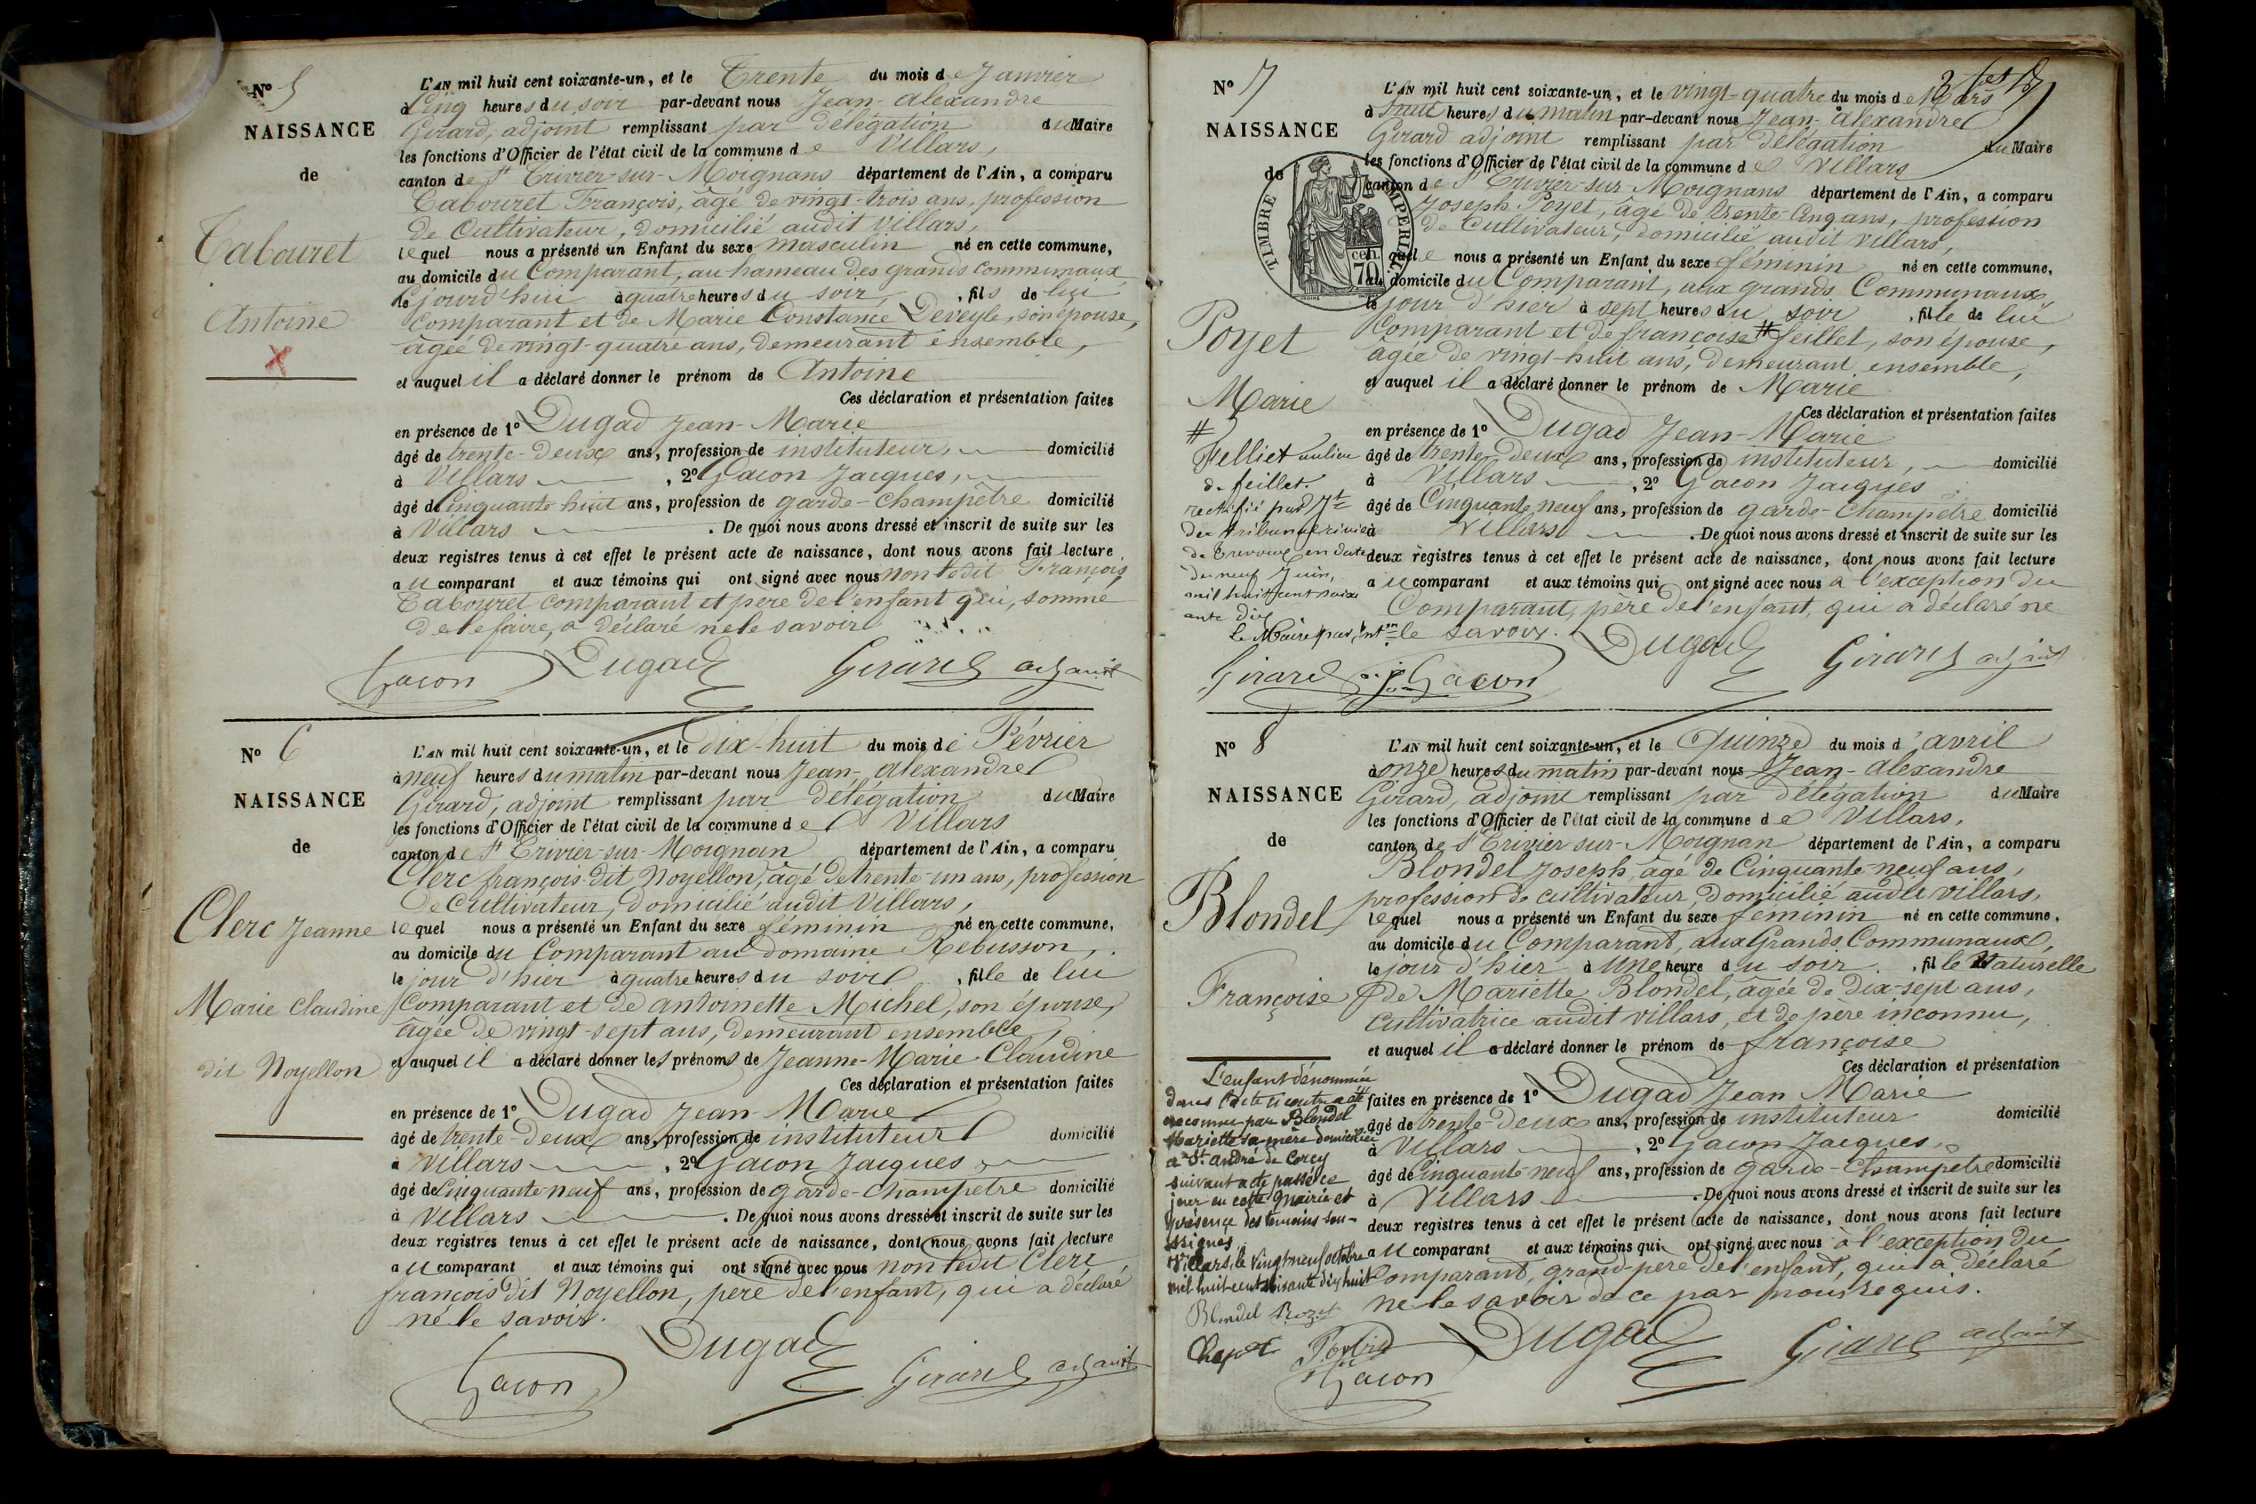 Nº 5
NAISSANCE
de
Tabouret
Antoine
L'AN mil huit cent soixante-un, et le Trente du mois de Janvier
à Cinq heures du soir par-devant nous Jean-Alexandre
Girard, adjoint remplissant par délégation du Maire
les fonctions d'Officier de l'état civil de la commune de Villars,
canton de St Trivier-sur-Moignans département de l'Ain, a comparu
Tabouret François, âgé de vingt-trois ans, profession
de Cultivateur, domicilié audit Villars,
lequel nous a présenté un Enfant du sexe masculin né en cette commune,
au domicile du Comparant, au hameau des grands Communaux,
le jourd'hui à quatre heures du soir, , fils de lui
Comparant et de Marie Constance Deveyle, son épouse,
âgée de vingt-quatre ans, demeurant ensemble,
et auquel il a déclaré donner le prénom de Antoine
Ces déclaration et présentation faites
en présence de 1º Dugad Jean-Marie
âgé de trente-deux ans, profession de instituteur, domicilié
à Villars , 2º Gacon Jacques,
âgé de Cinquante-huit ans, profession de garde-Champêtre domicilié
à Villars . De quoi nous avons dressé et inscrit de suite sur les
deux registres tenus à cet effet le présent acte de naissance, dont nous avons fait lecture
au comparant et aux témoins qui ont signé avec nous non ledit François
Tabouret comparant et père de l'enfant qui, sommé
de le faire, a déclaré ne le savoir
Gacon Dugad Girard adjoint
Nº 6
NAISSANCE
de
Clerc Jeanne
Marie Claudine
dit Noyellon
L'AN mil huit cent soixante-un, et le dix-huit du mois de Février
à neuf heures du matin par-devant nous Jean-Alexandre
Girard, adjoint remplissant par délégation du Maire
les fonctions d'Officier de l'état civil de la commune de Villars
canton de St Trivier-sur-Moignan département de l'Ain, a comparu
Clerc françois dit Noyellon, âgé de trente-un ans, profession
de Cultivateur, domicilié audit Villars,
lequel nous a présenté un Enfant du sexe féminin né en cette commune,
au domicile du Comparant au domaine Rebusson,
le jour d'hier à quatre heures du soir , fille de lui
Comparant et de antoinette Michel, son épouse,
âgée de vingt-sept ans, demeurant ensemble,
et auquel il a déclaré donner les prénoms de Jeanne-Marie-Claudine
Ces déclaration et présentation faites
en présence de 1º Dugad Jean Marie
âgé de trente-deux ans, profession de instituteur domicilié
à Villars , 2º Gacon Jacques,
âgé de Cinquante neuf ans, profession de garde-champêtre domicilié
à Villars . De quoi nous avons dressé et inscrit de suite sur les
deux registres tenus à cet effet le présent acte de naissance, dont nous avons fait lecture
au comparant et aux témoins qui ont signé avec nous non ledit Clerc
françois dit Noyellon, père de l'enfant, qui a déclaré
ne le savoir.
Gacon Dugad Girard adjoint
Nº 7
NAISSANCE
de
TIMBRE IMPERIAL
70 cen.
Poyet
Marie
#
Felliet au lieu
de feillet.
rectifié par Jt
du tribunal civil
de Trévoux en date
du neuf Juin,
mil huit cent soix
ante dix
le Maire par int
Girard
L'AN mil huit cent soixante-un, et le vingt-quatre du mois de Mars
à huit heures du matin par-devant nous Jean-Alexandre
Girard adjoint remplissant par délégation du Maire
les fonctions d'Officier de l'état civil de la commune de Villars
canton de St Trivier-sur-Moignans département de l'Ain, a comparu
Joseph Poyet, âgé de trente-Cinq ans, profession
de Cultivateur, domicilié audit Villars,
lequel nous a présenté un Enfant du sexe féminin né en cette commune,
au domicile du Comparant, aux grands Communaux,
le jour d'hier à sept heures du soir , fille de lui
Comparant et de françoise # feillet, son épouse,
âgée de vingt-huit ans, demeurant ensemble,
et auquel il a déclaré donner le prénom de Marie
Ces déclaration et présentation faites
en présence de 1º Dugad Jean-Marie
âgé de trente-deux ans, profession de instituteur, domicilié
à Villars , 2º Gacon Jacques
âgé de Cinquante neuf ans, profession de garde-Champêtre domicilié
à Villars . De quoi nous avons dressé et inscrit de suite sur les
deux registres tenus à cet effet le présent acte de naissance, dont nous avons fait lecture
au comparant et aux témoins qui ont signé avec nous à l'exception du
Comparant, père de l'enfant, qui a déclaré ne
le savoir.
Gacon Dugad Girard adjoint
Nº 8
NAISSANCE
de
Blondel
Françoise
L'enfant dénommée
dans l'acte ci contre a été
reconnue par Blondel
Mariette sa mère domiciliée
à St. André de Corcy
suivant acte passé ce
jour en cette mairie et
présence des témoins sou-
ssignés
Villars, le vingt neuf octobre
mil huit cent soixante dix huit
Blondel
L'AN mil huit cent soixante-un, et le Quinze du mois d'avril
à onze heures du matin par-devant nous Jean-Alexandre
Girard, adjoint remplissant par délégation du Maire
les fonctions d'Officier de l'état civil de la commune de Villars,
canton de St Trivier-sur-Moignan département de l'Ain, a comparu
Blondel Joseph, âgé de Cinquante-neuf ans,
profession de cultivateur, domicilié audit villars,
lequel nous a présenté un Enfant du sexe féminin né en cette commune,
au domicile du Comparant, aux Grands Communaux,
le jour d'hier à une heure du soir , fille Naturelle
de Mariette Blondel, âgée de dix-sept ans,
Cultivatrice audit villars, et de père inconnu,
et auquel il a déclaré donner le prénom de françoise
Ces déclaration et présentation
faites en présence de 1º Dugad Jean Marie
âgé de trente-deux ans, profession de instituteur domicilié
à Villars , 2º Gacon Jacques,
âgé de Cinquante neuf ans, profession de garde-Champêtre domicilié
à Villars . De quoi nous avons dressé et inscrit de suite sur les
deux registres tenus à cet effet le présent acte de naissance, dont nous avons fait lecture
au comparant et aux témoins qui ont signé avec nous à l'exception du
Comparant, grand-père de l'enfant, qui a déclaré
ne le savoir de ce par nous requis.
Gacon Dugad Girard adjoint